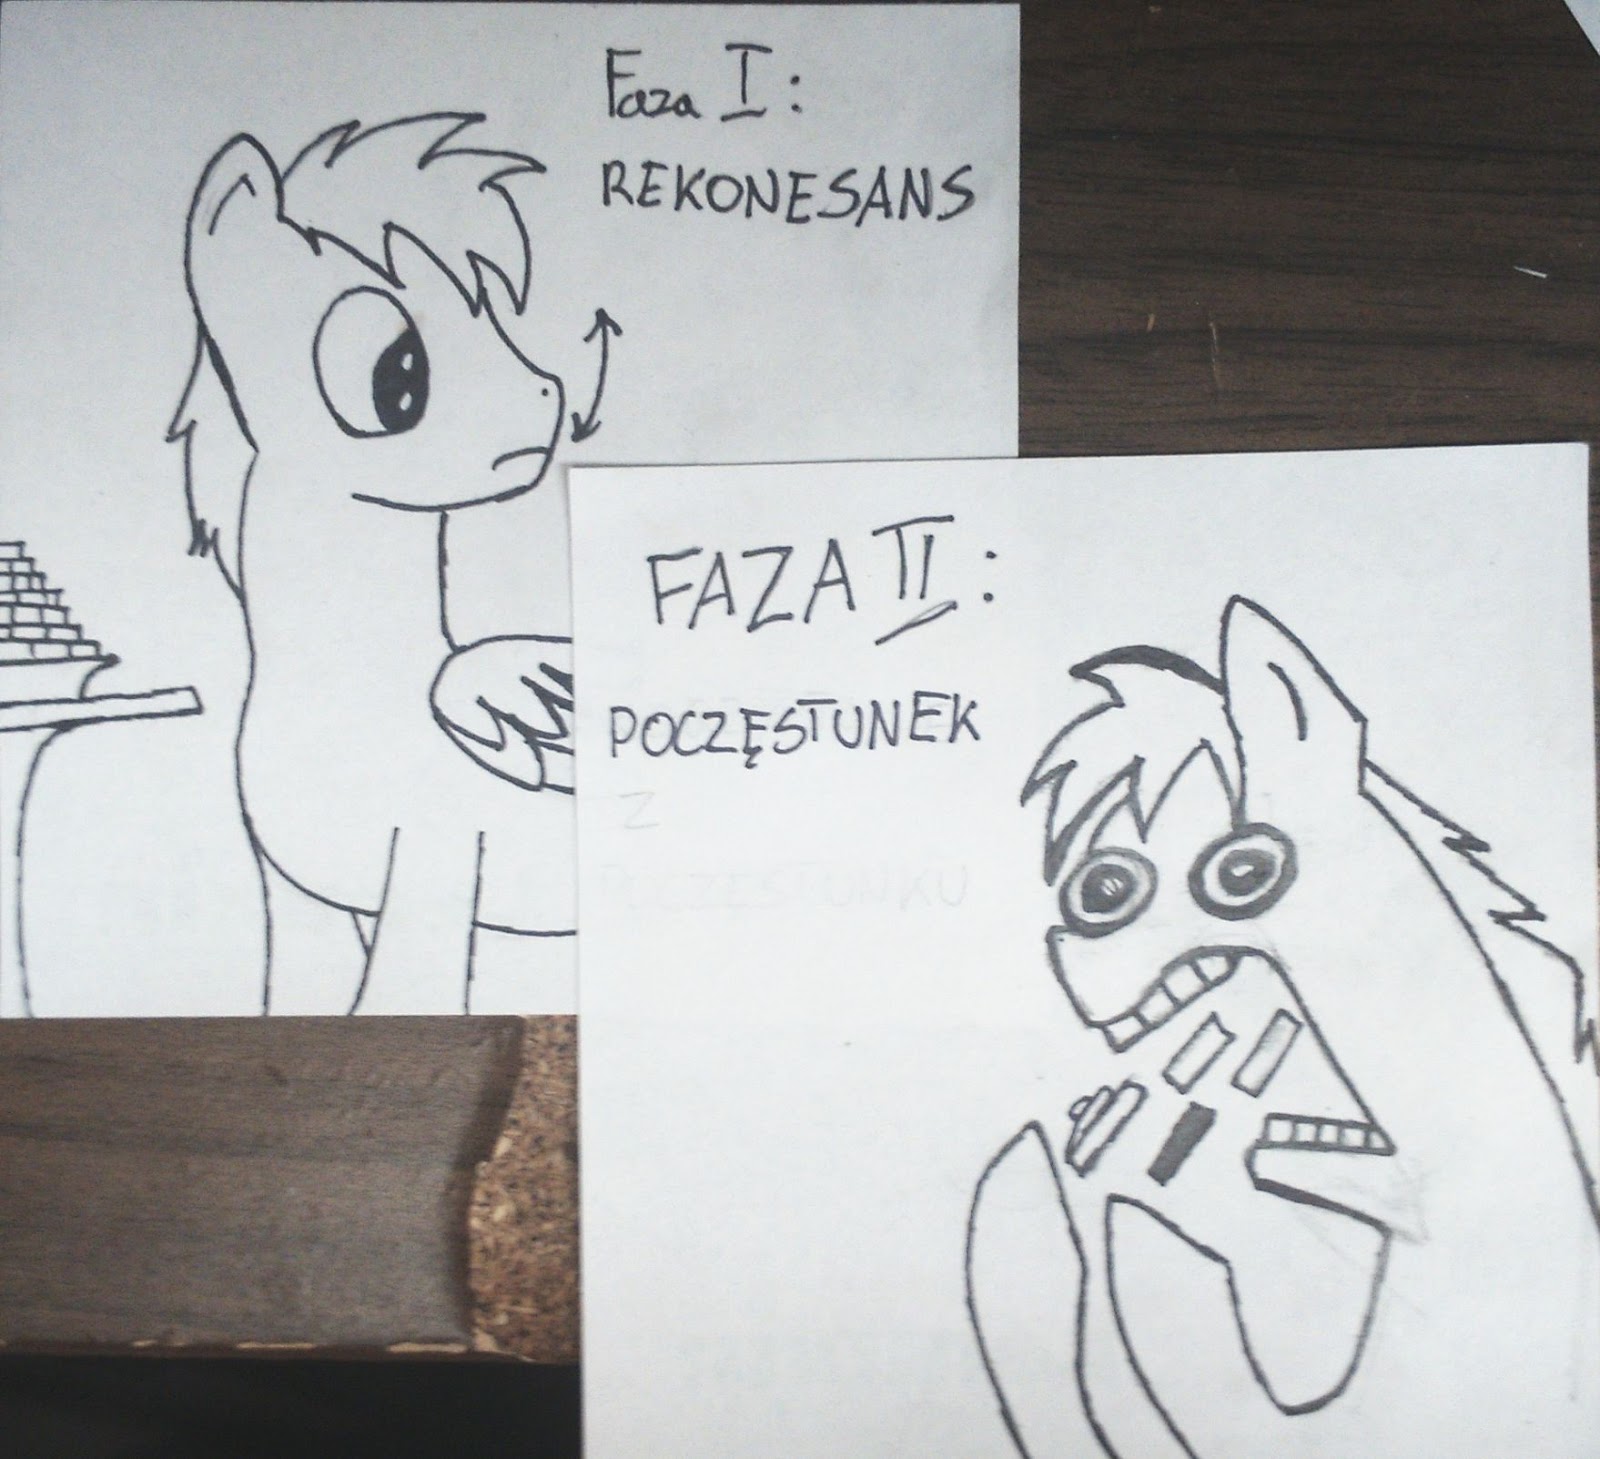 Faza I:
REKONESANS
FAZA II:
POCZĘSTUNEK
Z
POCZĘSTUNKU